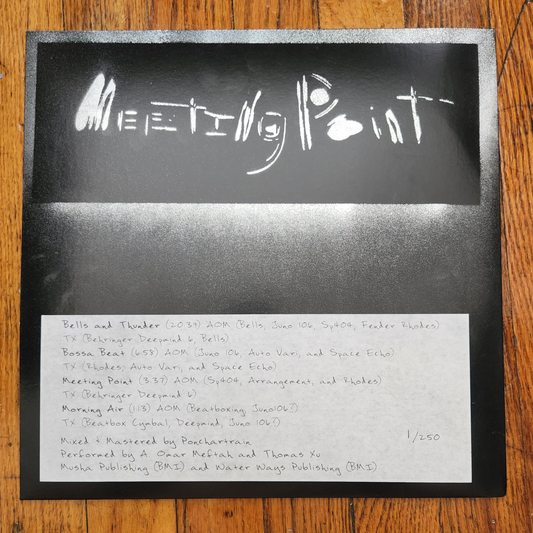 Meeting Point
Bells and Thunder (20:39) AOM (Bells, Juno 106, Sp404, Fender Rhodes)
TX (Behringer Deepmind 6, Bells)
Bossa Beat (6:58) AOM (Juno 106, Auto Vari, and Space Echo)
TX (Rhodes, Auto Vari, and Space Echo)
Meeting Point (3:37) AOM (Sp404, Arrangement, and Rhodes)
TX (Behringer Deepmind 6)
Morning Air (1:13) AOM (Beatboxing, Juno106?)
TX (Beatbox Cymbal, Deepmind, Juno 106?)
Mixed + Mastered by Ponchartrain
1/250
Performed by A. Omar Meftah and Thomas Xu
Musha Publishing (BMI) and Water Ways Publishing (BMI)